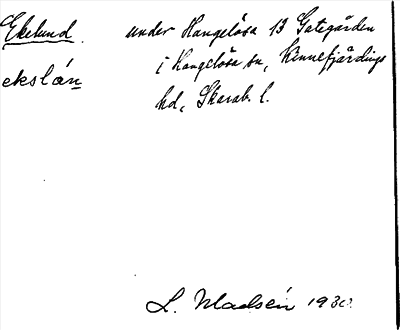 Ekelund. under Hangelösa 13 Gategården
i Hangelösa sn, Kinnefjärdings
ekslán
hd, Skarab. l.
L. Madsén 1930.